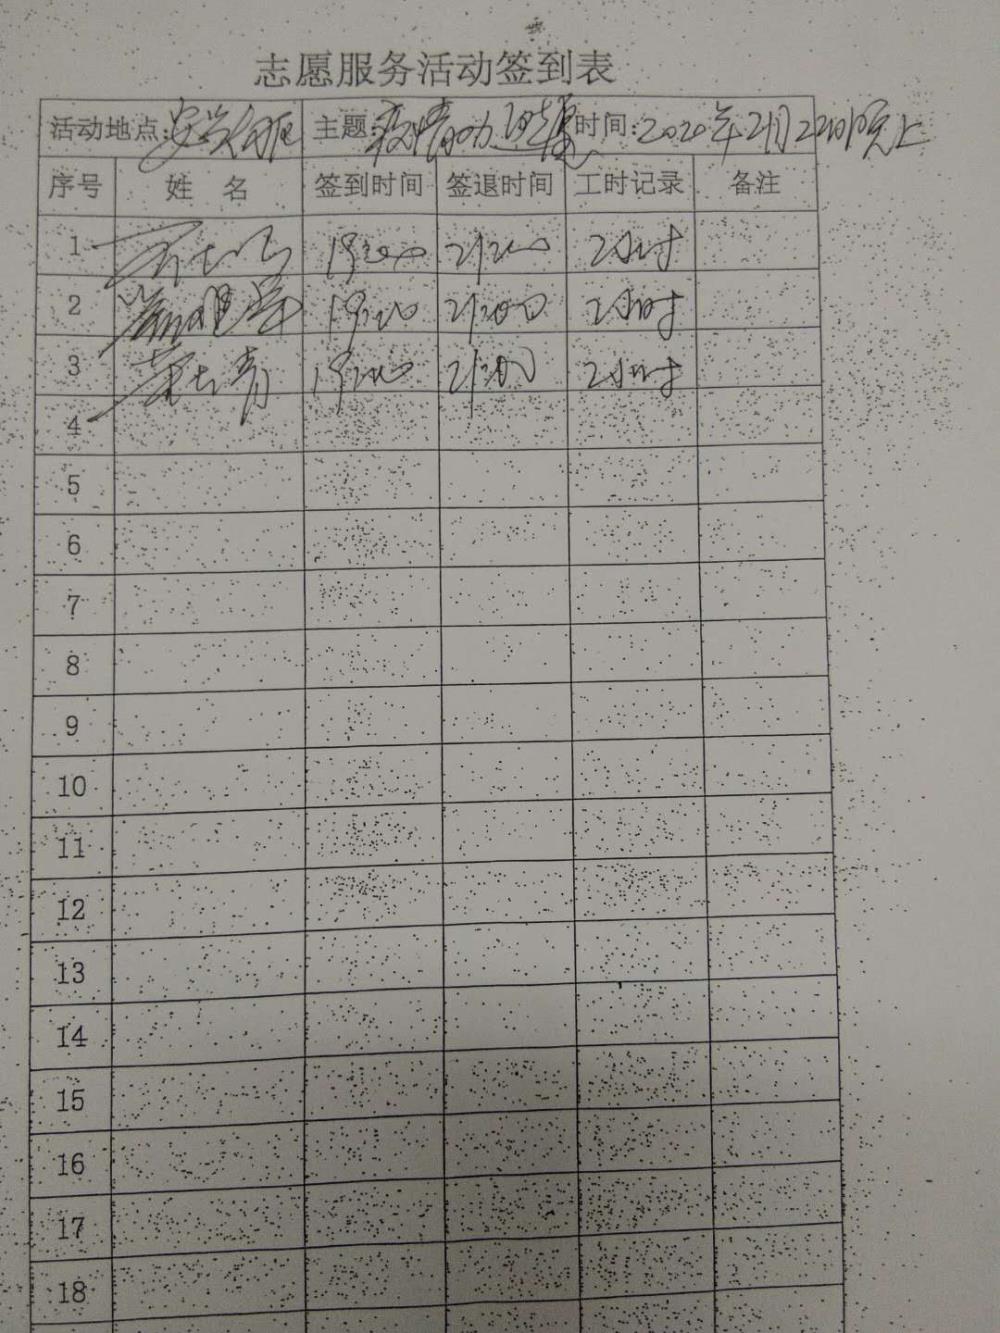 志愿服务活动签到表
活动地点: 主题: 疫情 时间: 2020年2月22日晚上
序号 姓 名 签到时间 签退时间 工时记录 备注
1 19:00 21:00 2小时
2 19:00 21:00 2小时
3 19:00 21:00 2小时
4
5
6
7
8
9
10
11
12
13
14
15
16
17
18